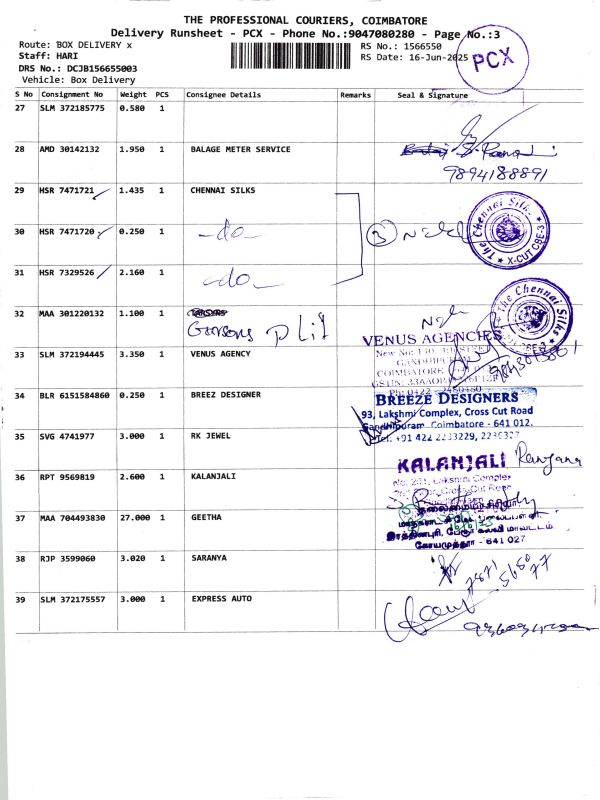 THE PROFESSIONAL COURIERS, COIMBATORE
Delivery Runsheet - PCX - Phone No.:9047080280 - Page No.:3
Route: BOX DELIVERY x
RS No.: 1566550
Staff: HARI
RS Date: 16-Jun-2025
DRS No.: DCJB156655003
Vehicle: Box Delivery
PCX
S No Consignment No Weight PCS Consignee Details Remarks Seal & Signature
27 SLM 372185775 0.580 1
28 AMD 30142132 1.950 1 BALAGE METER SERVICE
9894188891
29 HSR 7471721 1.435 1 CHENNAI SILKS
The Chennai Silks
X-CUT CBE-3
30 HSR 7471720 0.250 1 -do-
3
31 HSR 7329526 2.160 1 -do-
The Chennai Silks
32 MAA 301220132 1.100 1
VENUS AGENCIES
33 SLM 372194445 3.350 1 VENUS AGENCY
COIMBATORE
34 BLR 6151584860 0.250 1 BREEZ DESIGNER
BREEZE DESIGNERS
93, Lakshmi Complex, Cross Cut Road
Gandhipuram, Coimbatore - 641 012.
35 SVG 4741977 3.000 1 RK JEWEL
Tel: +91 422 2233229, 2236327
KALANJALI Ranjana
36 RPT 9569819 2.600 1 KALANJALI
Lakshmi Complex
Cross Cut Road
37 MAA 704493830 27.000 1 GEETHA
கோயமுத்தூர் - 641 027.
38 RJP 3599060 3.020 1 SARANYA
39 SLM 372175557 3.000 1 EXPRESS AUTO